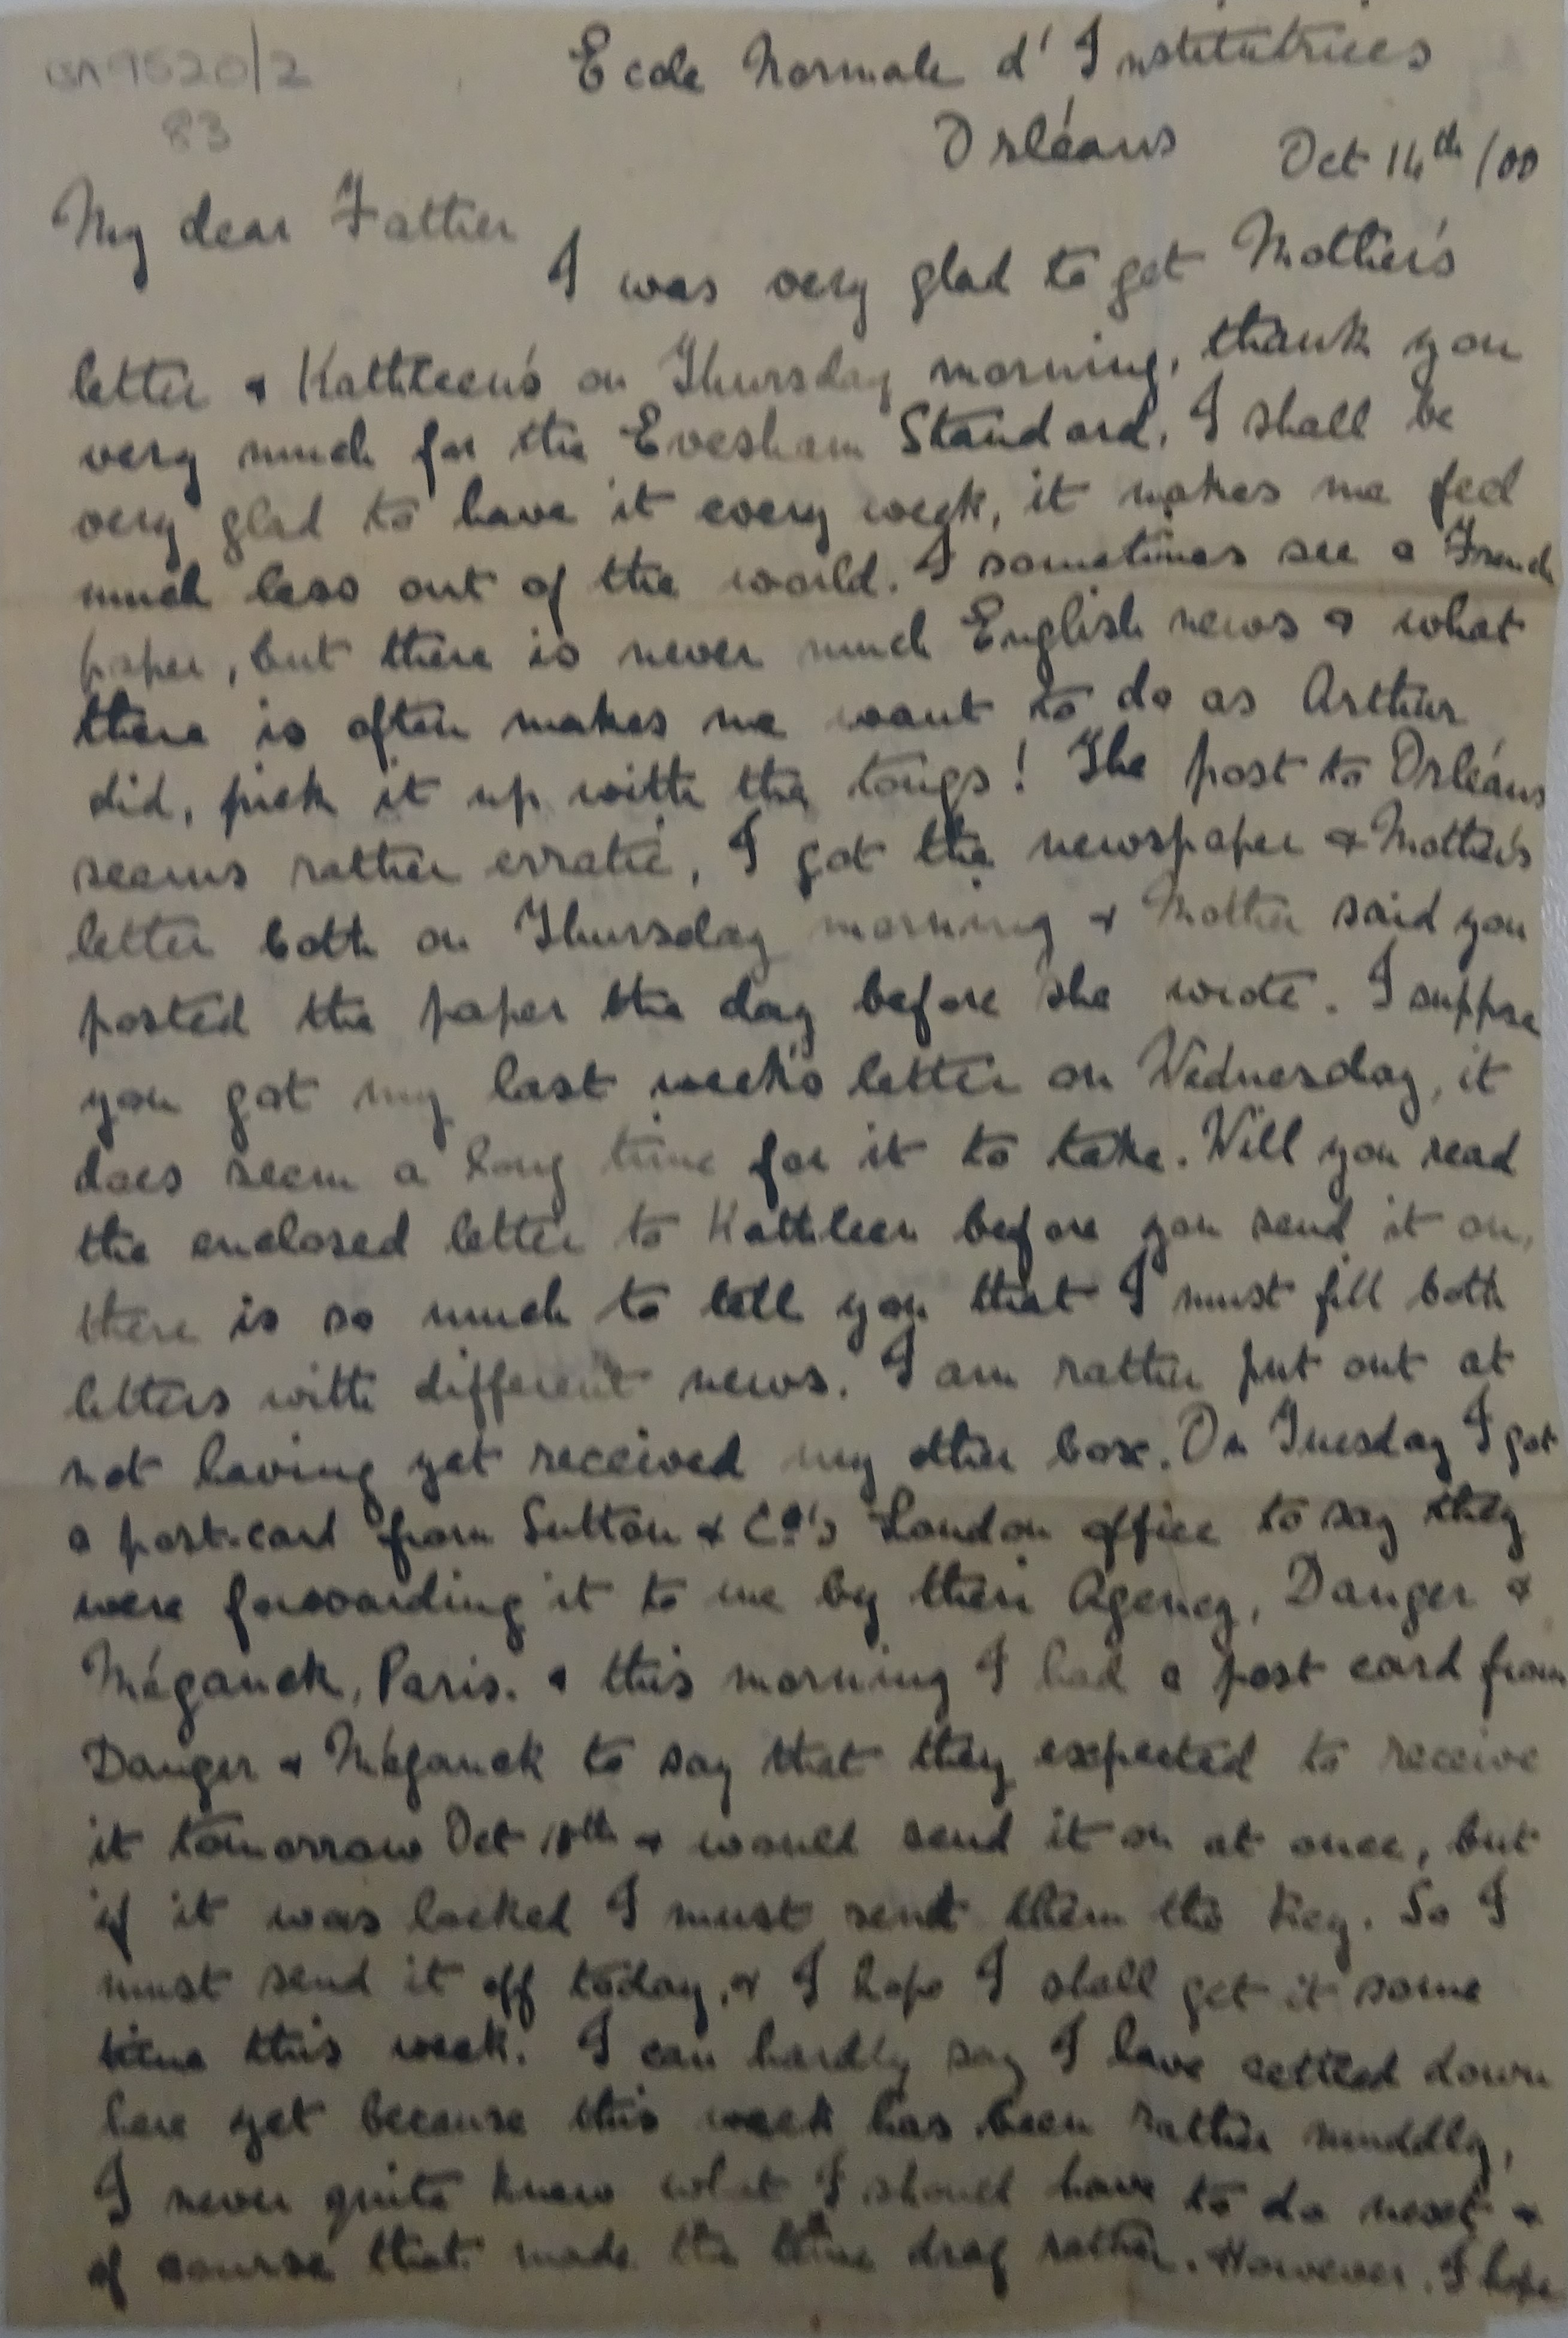 BA 9520/2
83
Ecole Normale d'Institutrices
Orléans Oct 14th /00
My dear Father
I was very glad to get Mother's
letter & Kathleen's on Thursday morning, thank you
very much for the Evesham Standard, I shall be
very glad to have it every week, it makes me feel
much less out of the world. I sometimes see a French
paper, but there is never much English news & what
there is often makes me want to do as Arthur
did, pick it up with the tongs! The post to Orléans
seems rather erratic, I got the newspaper & Mother's
letter both on Thursday morning & Mother said you
posted the paper the day before she wrote. I suppose
you got my last week's letter on Wednesday, it
does seem a long time for it to take. Will you read
the enclosed letter to Kathleen before you send it on,
there is so much to tell you that I must fill both
letters with different news. I am rather put out at
not having yet received my other box. On Tuesday I got
a post-card from Sutton & Co's London office to say they
were forwarding it to me by their Agency, Danger &
Méganck, Paris. & this morning I had a post card from
Danger & Méganck to say that they expected to receive
it tomorrow Oct 15th & would send it on at once, but
if it was locked I must send them the key. So I
must send it off today, & I hope I shall get it some
time this week. I can hardly say I have settled down
here yet because this week has been rather muddly,
I never quite knew what I should have to do next &
of course that made the time drag rather. However, I hope